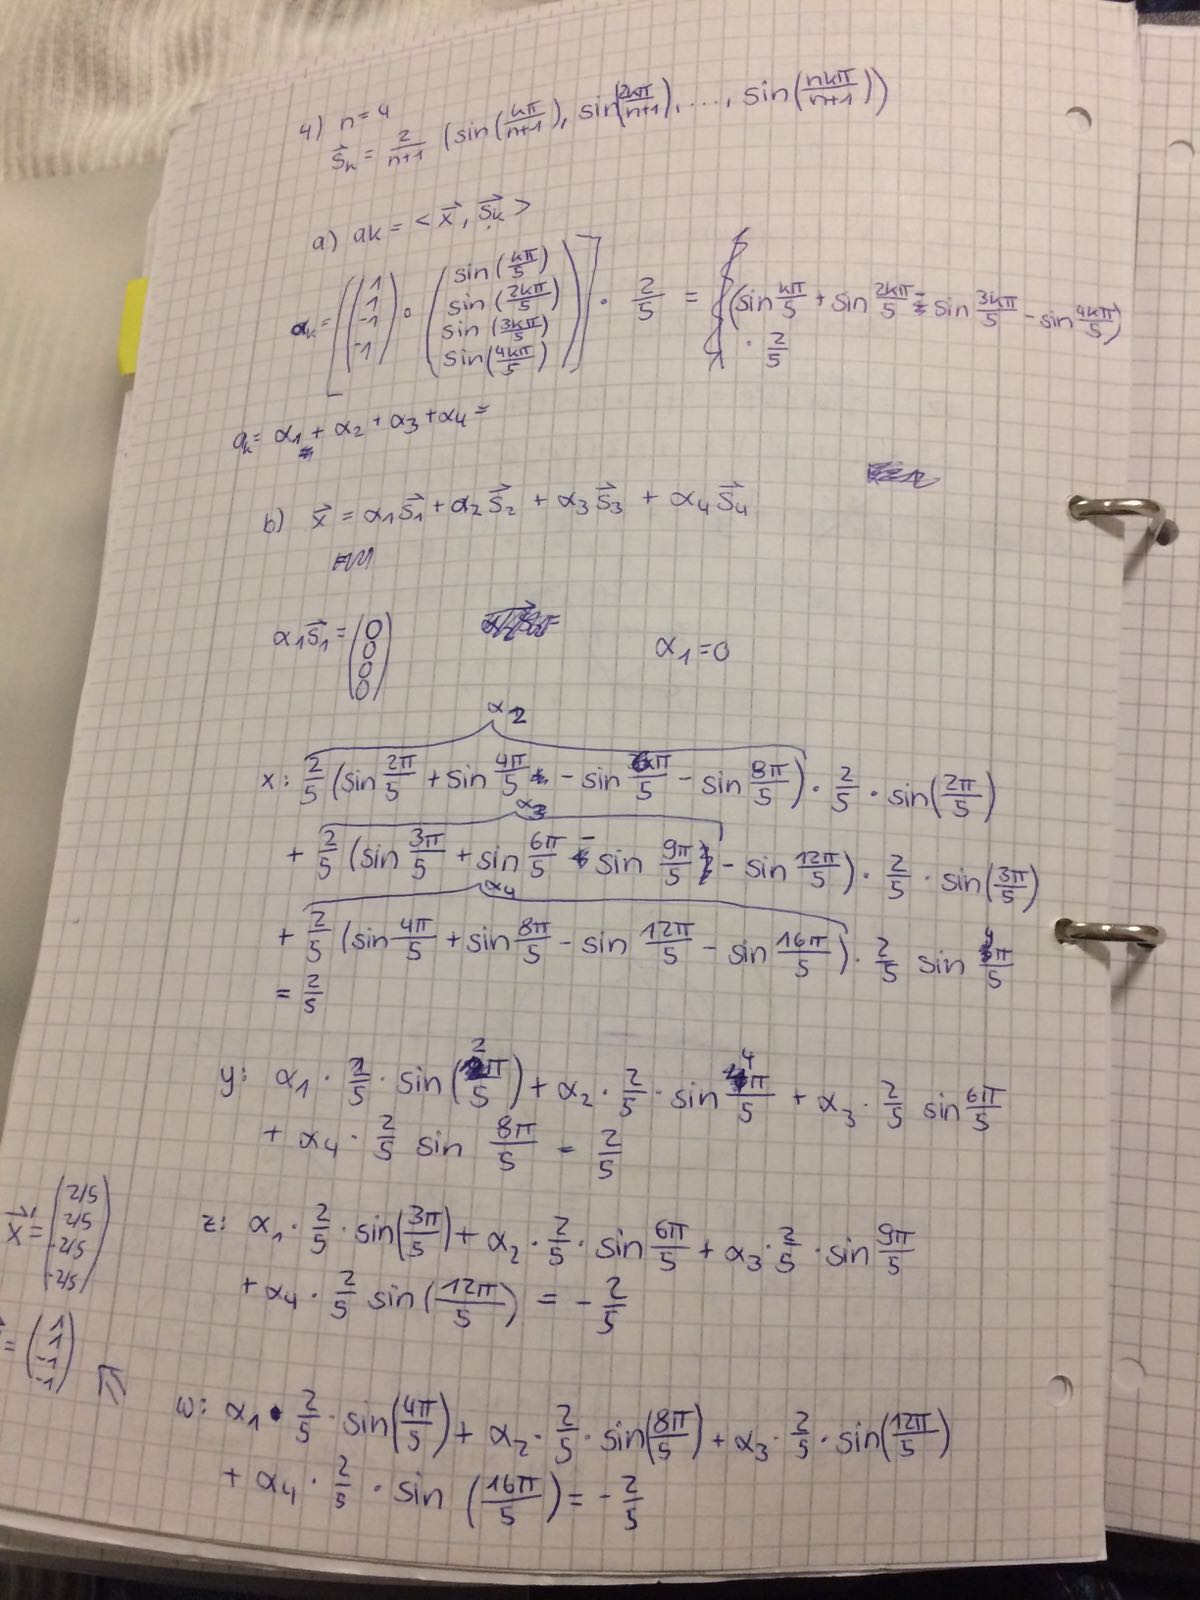 4) n=4
s⃗ₖ = 2/(n+1) (sin(kπ/(n+1)), sin(2kπ/(n+1)), ...., sin(nkπ/(n+1)))
a) ak = <x⃗, s⃗ₖ>
αₖ = [(1 1 -1 -1) ∘ (sin(kπ/5) sin(2kπ/5) sin(3kπ/5) sin(4kπ/5))] · 2/5 = (sin kπ/5 + sin 2kπ/5 - sin 3kπ/5 - sin 4kπ/5)
· 2/5
aₖ = α₁ + α₂ + α₃ + α₄ =
b) x⃗ = α₁s⃗₁ + α₂s⃗₂ + α₃s⃗₃ + α₄s⃗₄
α₁s⃗₁ = (0 0 0 0) α₁ = 0
α₂
x: 2/5 (sin 2π/5 + sin 4π/5 - sin 6π/5 - sin 8π/5) · 2/5 · sin(2π/5)
α₃
+ 2/5 (sin 3π/5 + sin 6π/5 - sin 9π/5 - sin 12π/5) · 2/5 · sin(3π/5)
α₄
+ 2/5 (sin 4π/5 + sin 8π/5 - sin 12π/5 - sin 16π/5) · 2/5 sin 4π/5
= 2/5
y: α₁ · 2/5 · sin(2π/5) + α₂ · 2/5 · sin 4π/5 + α₃ · 2/5 sin 6π/5
+ α₄ · 2/5 sin 8π/5 = 2/5
x⃗' = (2/5 2/5 -2/5 -2/5)
z: α₁ · 2/5 · sin(3π/5) + α₂ · 2/5 · sin 6π/5 + α₃ · 2/5 · sin 9π/5
+ α₄ · 2/5 sin(12π/5) = - 2/5
= (1 1 -1 -1)
w: α₁ · 2/5 · sin(4π/5) + α₂ · 2/5 · sin(8π/5) + α₃ · 2/5 · sin(12π/5)
+ α₄ · 2/5 · sin (16π/5) = - 2/5